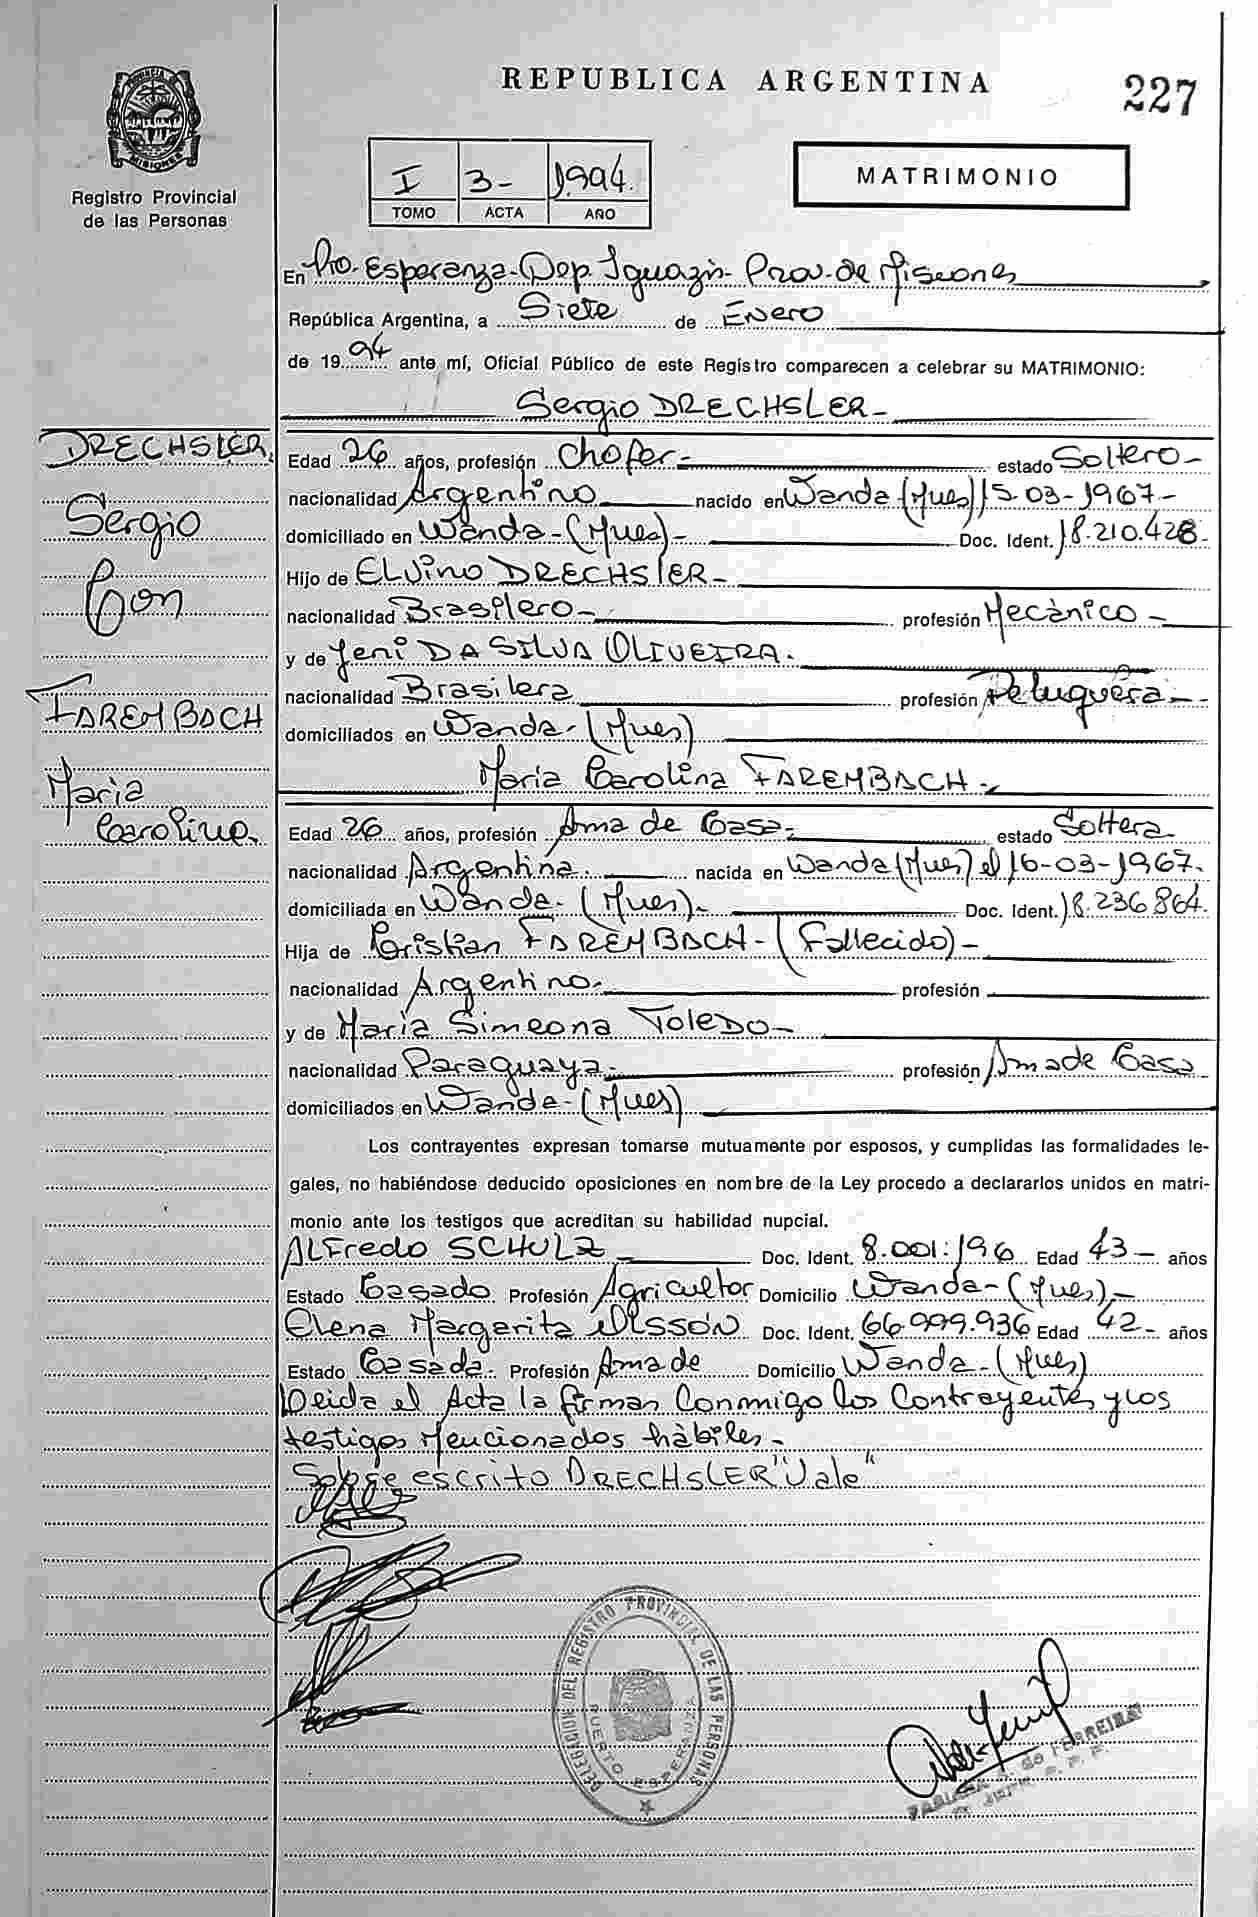 REPUBLICA ARGENTINA
227
PROVINCIA DE MISIONES
Registro Provincial
de las Personas
I 3- 1994.
TOMO ACTA AÑO
MATRIMONIO
En Pto. Esperanza- Dep. Iguazú- Prov. de Misiones
República Argentina, a Siete de Enero
de 1994 ante mí, Oficial Público de este Registro comparecen a celebrar su MATRIMONIO:
Sergio DRECHSLER-
DRECHSLER.
Sergio
Con
FAREMBACH
Maria
Carolina.
Edad 26 años, profesión Chofer- estado Soltero-
nacionalidad Argentino nacido en Wanda (Mnes) 15-03-1967-
domiciliado en Wanda-(Mnes)- Doc. Ident. 18.210.428-
Hijo de ELVINO DRECHSLER-
nacionalidad Brasilero- profesión Mecànico-
y de Jeni DA SILVA OLIVEIRA.
nacionalidad Brasilera profesión Peluquera-
domiciliados en Wanda-(Mnes)
Maria Carolina FAREMBACH-
Edad 26 años, profesión Ama de Casa- estado Soltera
nacionalidad Argentina. nacida en Wanda (Mnes) el 16-03-1967.
domiciliada en Wanda-(Mnes)- Doc. Ident. 18.236.864.
Hija de Cristian FAREMBACH-(Fallecido)-
nacionalidad Argentino. profesión
y de Maria Simeona TOLEDO-
nacionalidad Paraguaya- profesión Ama de Casa
domiciliados en Wanda-(Mnes)
Los contrayentes expresan tomarse mutuamente por esposos, y cumplidas las formalidades le-
gales, no habiéndose deducido oposiciones en nombre de la Ley procedo a declararlos unidos en matri-
monio ante los testigos que acreditan su habilidad nupcial.
ALFredo SCHULZ Doc. Ident. 8.001.196 Edad 43- años
Estado Casado Profesión Agricultor Domicilio Wanda-(Mnes)-
Elena Margarita OLSSÓN Doc. Ident. 66.999.936 Edad 42- años
Estado Casada- Profesión Ama de Domicilio Wanda-(Mnes)
Leida el Acta la firman Conmigo los Contrayentes y los
testigos Mencionados hàbiles-
Sobre escrito DRECHSLER "Vale"
DELEGACION DEL REGISTRO PROVINCIAL DE LAS PERSONAS
PUERTO ESPERANZA
de FERREIRA